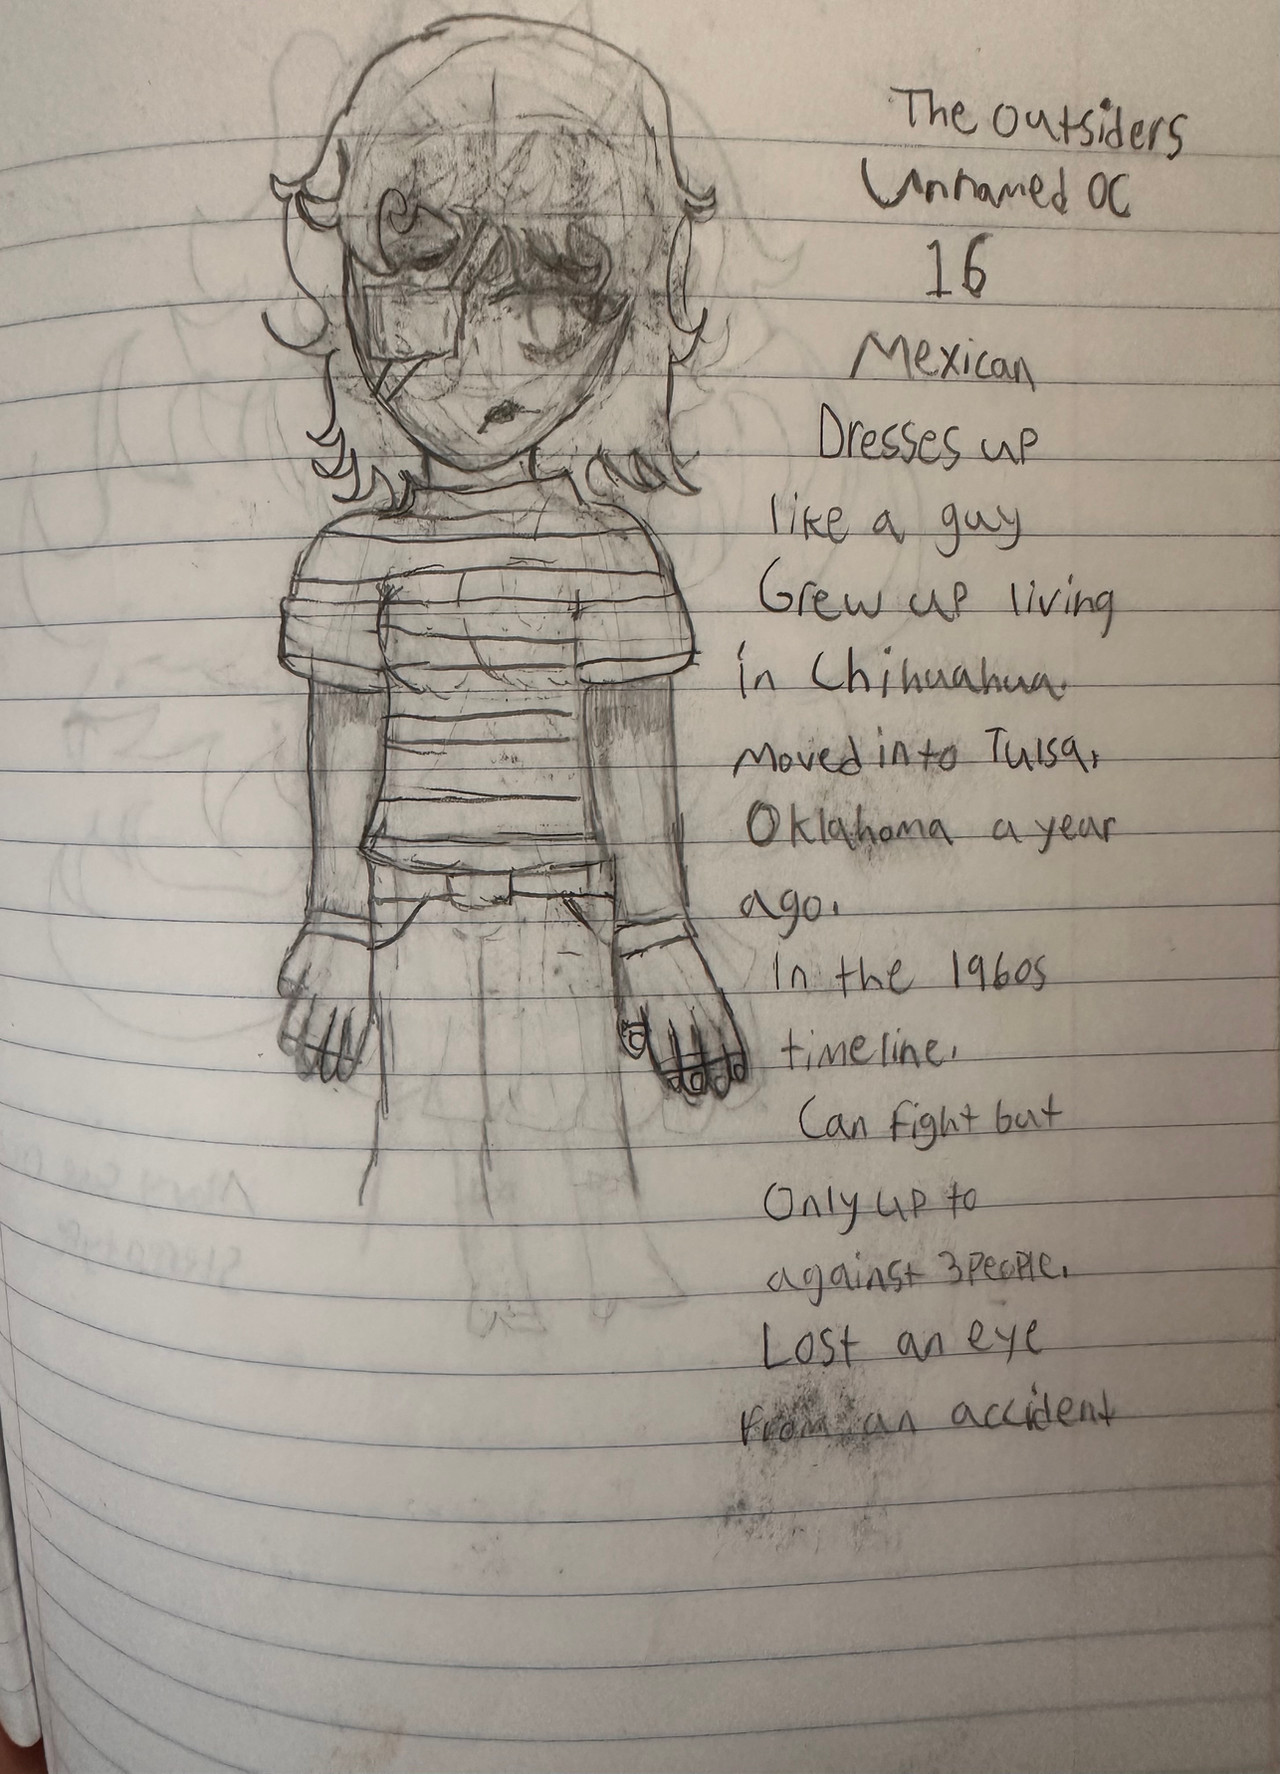 The Outsiders
Unnamed OC
16
Mexican
Dresses up
like a guy
Grew up living
in Chihuahua.
Moved into Tulsa,
Oklahoma a year
ago.
In the 1960s
timeline.
Can fight but
Only up to
against 3 people.
Lost an eye
from an accident